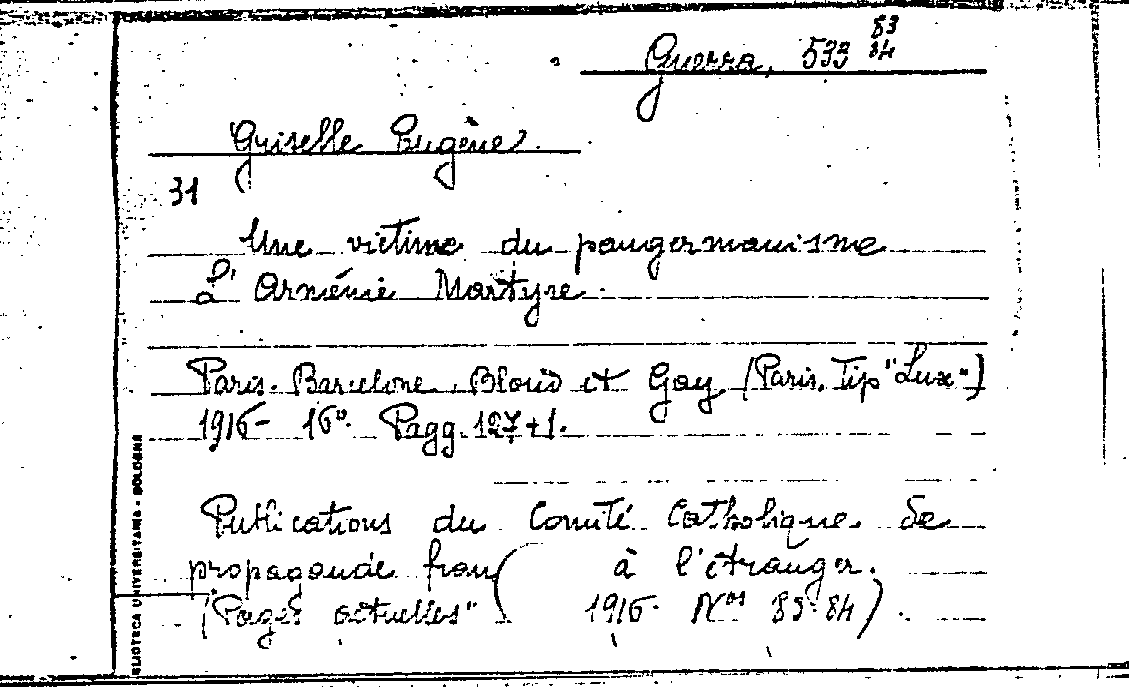 Guerra, 533 83
84
Griselle Eugène.
31
Une victime du pangermanisme
L'Arménie Martyre.
Paris. Barcelone. Bloud et Gay (Paris. Tip "Lux")
1916 - 16º. Pagg. 127+1.
Publications du Comité Catholique de
propagande fran à l'étranger.
("Pages actuelles" 1916. Nos 83-84).
BLIOTECA UNIVERSITARIA - BOLOGNA